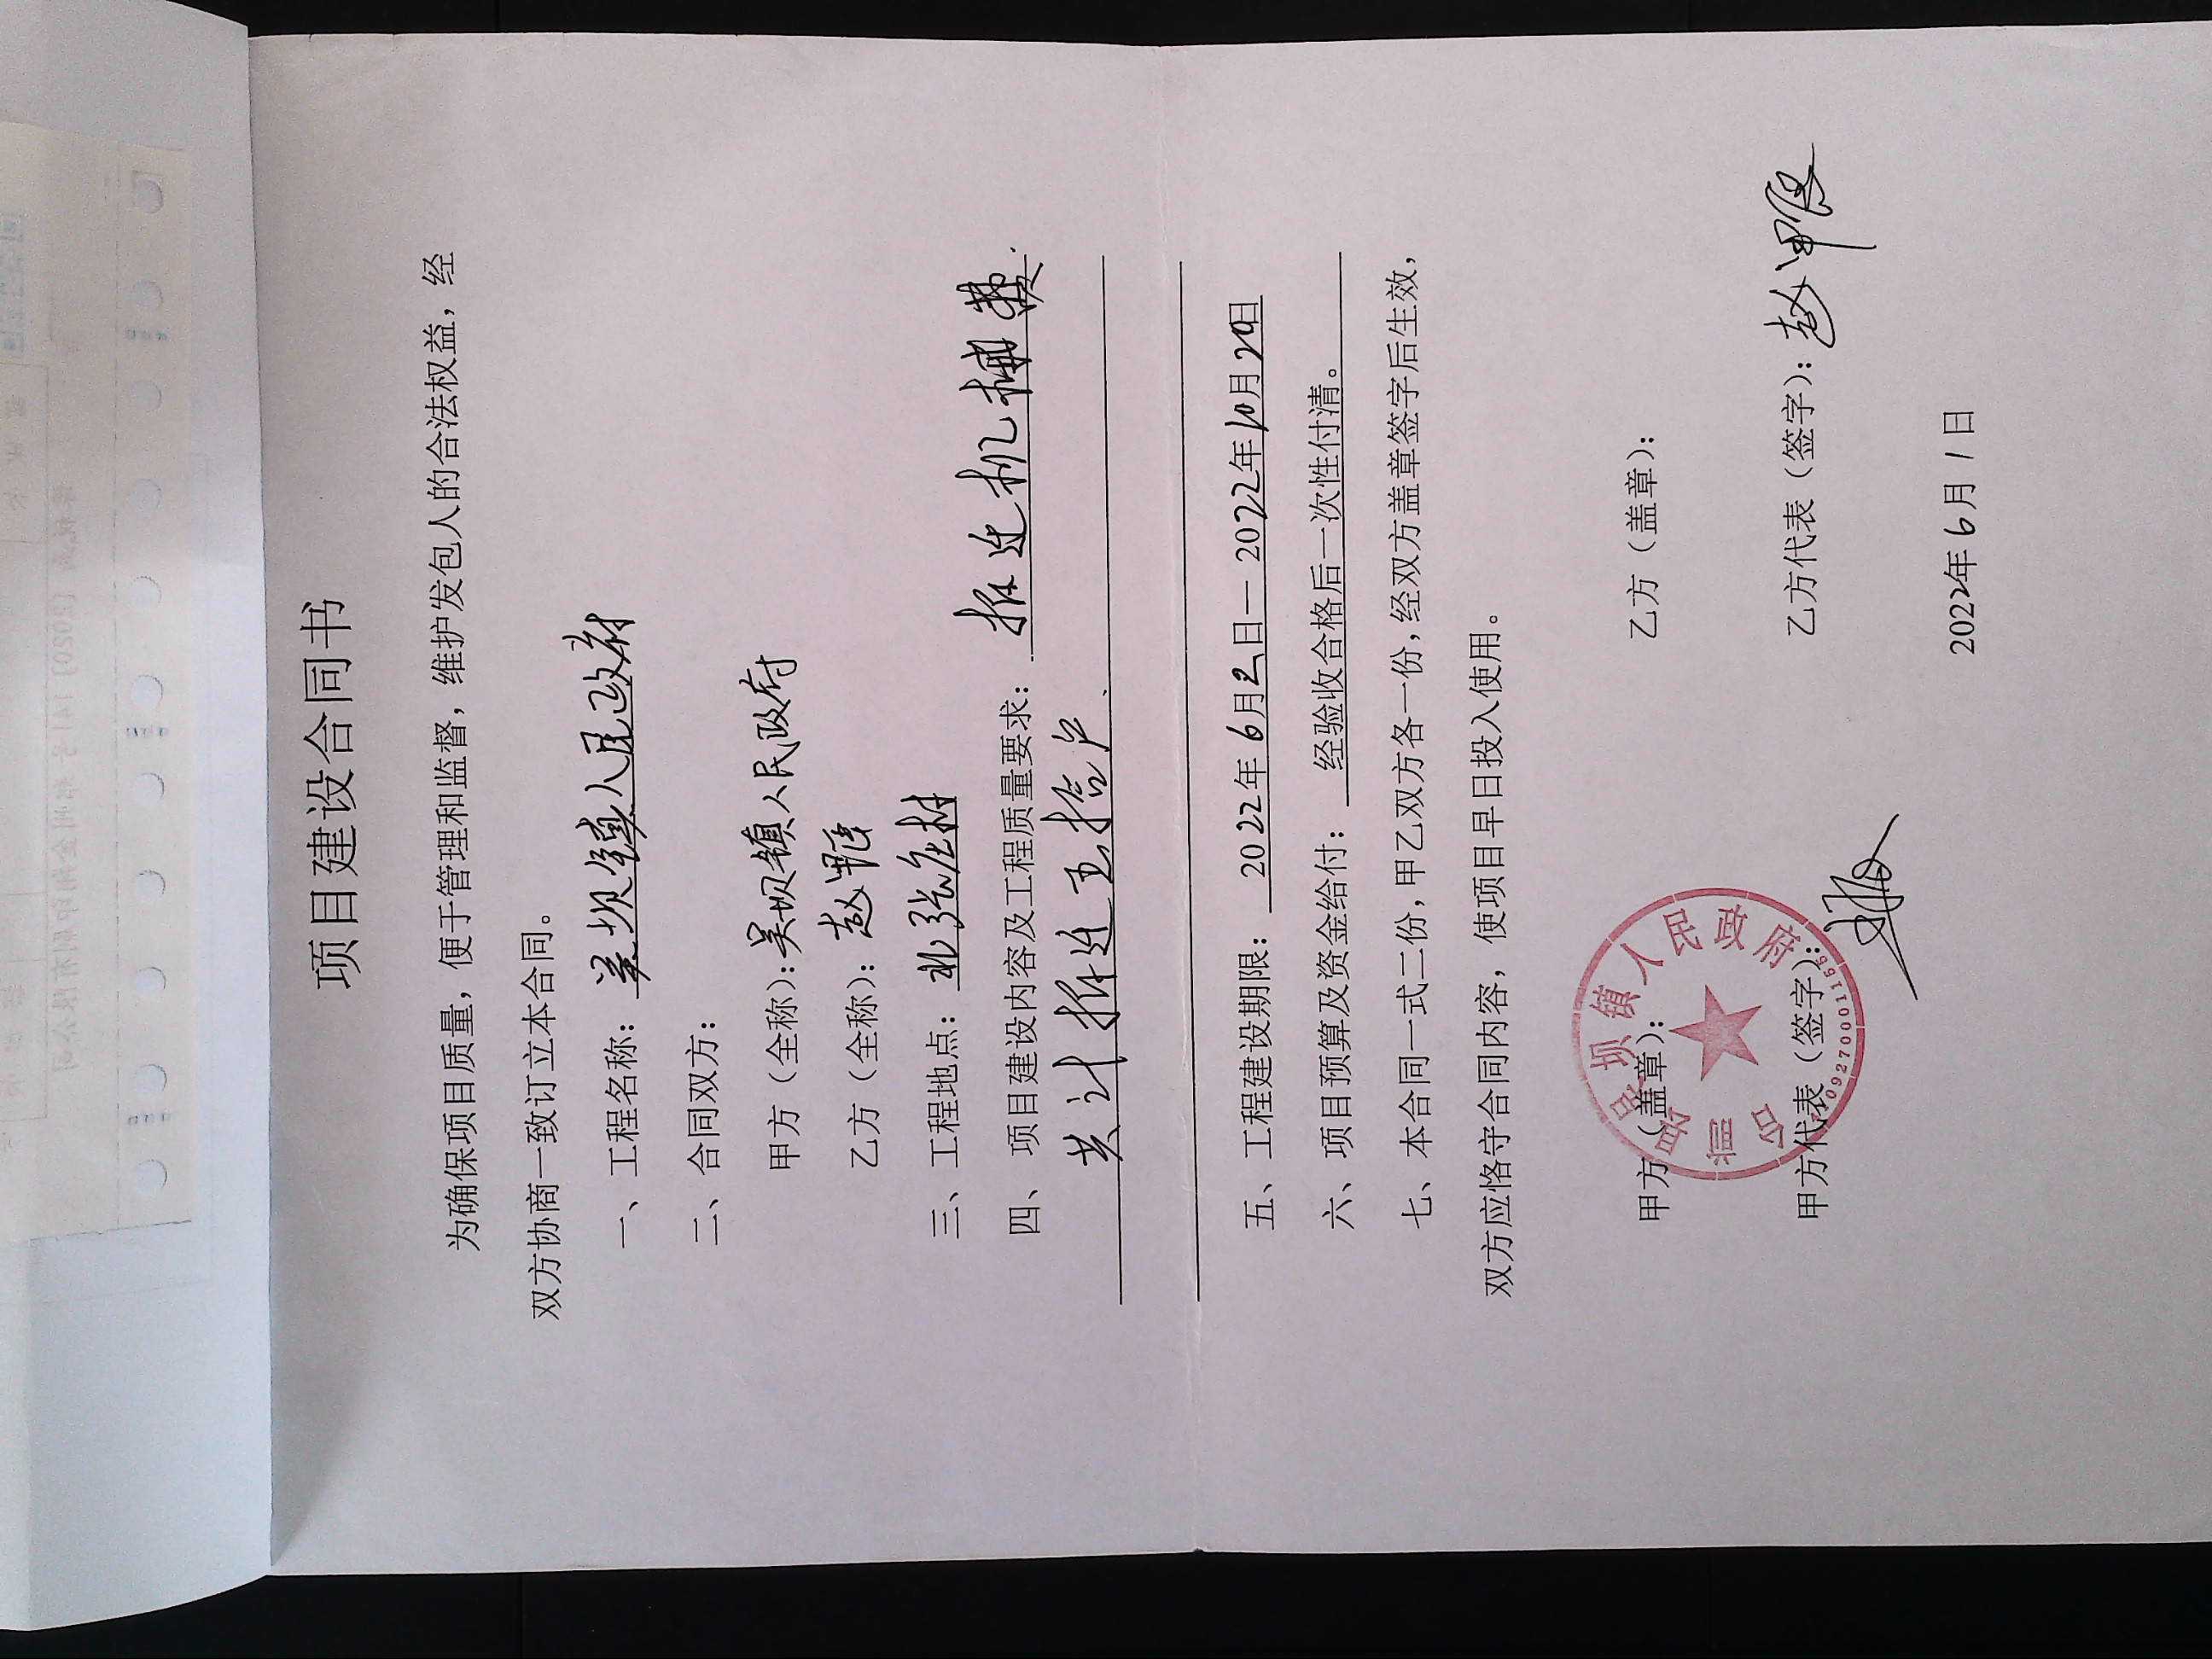 项目建设合同书
为确保项目质量，便于管理和监督，维护发包人的合法权益，经
双方协商一致订立本合同。
一、工程名称：吴坝镇人民政府
二、合同双方：
甲方（全称）：吴坝镇人民政府
乙方（全称）：赵
三、工程地点：北张庄村
四、项目建设内容及工程质量要求：拆迁机械费.
共计拆迁五拾户、
五、工程建设期限：2022年6月2日—2022年10月29日
六、项目预算及资金给付：经验收合格后一次性付清。
七、本合同一式二份，甲乙双方各一份，经双方盖章签字后生效，
双方应恪守合同内容，使项目早日投入使用。
甲方（盖章）： 乙方（盖章）：
坝镇人民政府
甲方代表（签字）： 乙方代表（签字）：赵
2022年6月1日